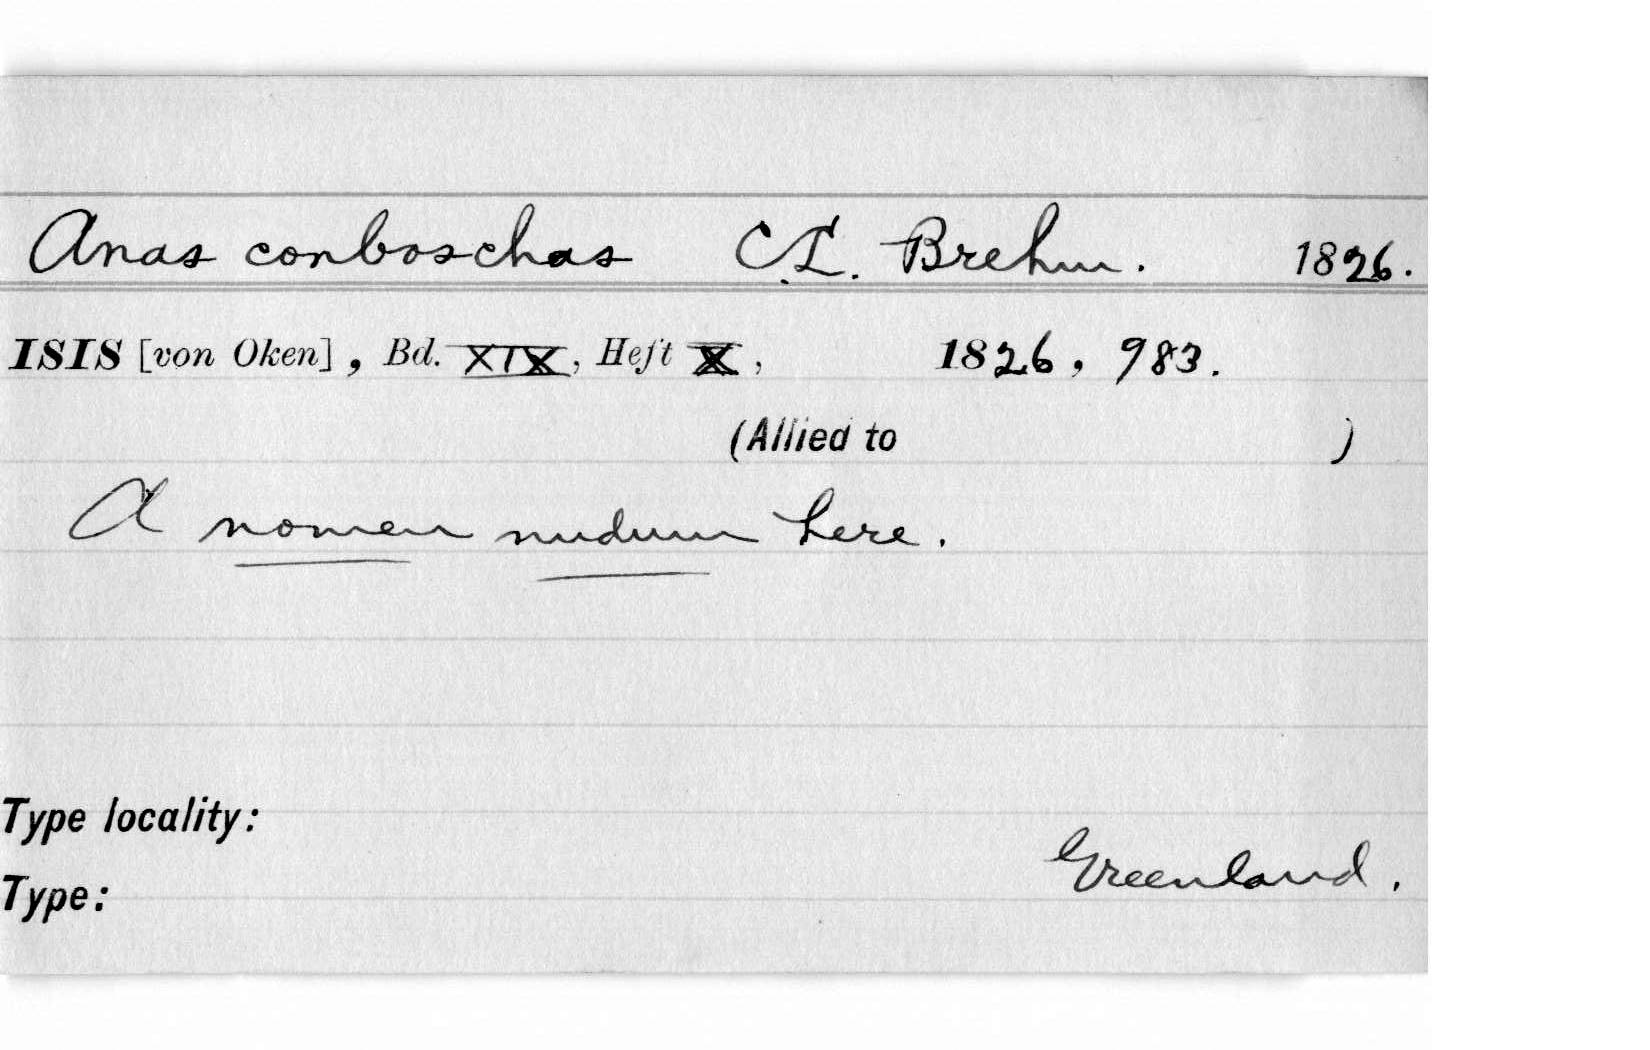 Anas conboschas C.L. Brehm. 1826.
ISIS [von Oken], Bd. XIX, Heft X, 1826, 983.
(Allied to )
A nomen nudum here.
Type locality:
Greenland.
Type: